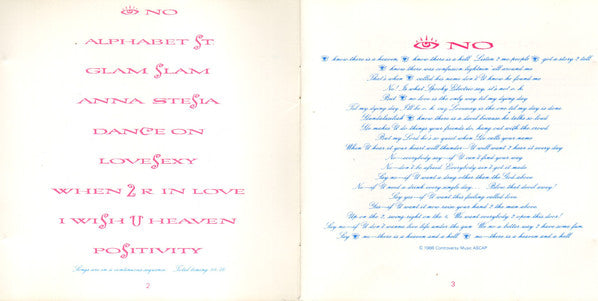 👁 NO
ALPHABET ST
GLAM SLAM
ANNA STESIA
DANCE ON
LOVESEXY
WHEN 2 R IN LOVE
I WISH U HEAVEN
POSITIVITY
Songs are in a continuous sequence. Total timing
2
👁 NO
👁 know there is a heaven, 👁 know there is a hell. Listen 2 me people 👁 got a story 2 tell
👁 know there was confusion lightnin' all around me
That's when 👁 called his name don't U know he found me
No! Is what Spooky Electric say, it's not o.k.
But 👁 no love is the only way til my dying day
Til my dying day, I'll be o.k. cuz Lovesexy is the one til my day is done
Hundalasiliah 👁 know there is a devil because he talks so loud
He makes U do things your friends do, hang out with the crowd
But my Lord he's so quiet when He calls your name
When U hear it your heart will thunder—U will want 2 hear it every day
No—everybody say—if U can't find your way
No—don't be afraid Everybody isn't got it made
Say no—if U want a drug other than the God above
No—if U need a drink every single day... Blow that devil away!
Say yes—if U want this feeling called love
Yes—if U want it now raise your hand 2 the man above
Up on the 2, swing right on the 4. We want everybody 2 open this door!
Say no—if U don't wanna live life under the gun No—there is a better way 2 have some fun
Say 👁 no—there is a heaven and a hell 👁 no—there is a heaven and a hell
© 1988 Controversy Music ASCAP
3